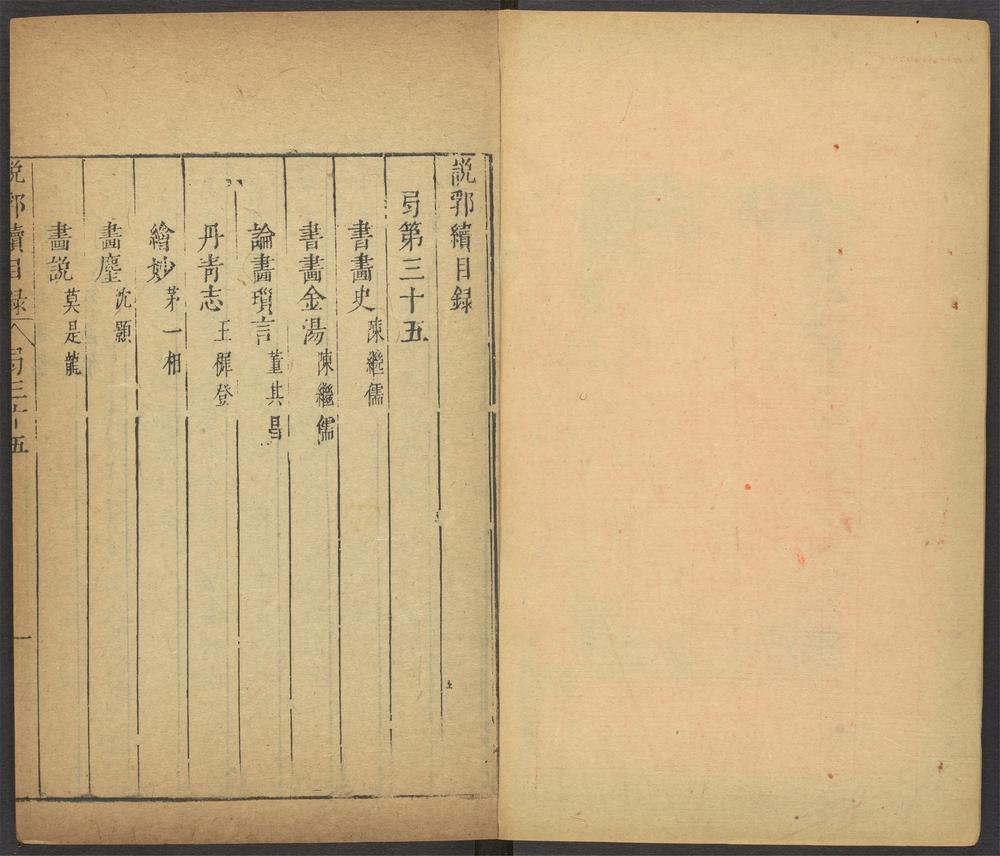 説郛續目錄
㢧第三十五
書畫史 陳繼儒
書畫金湯 陳繼儒
論畫瑣言 董其昌
丹青志 王穉登
繪妙 茅一相
畫麈 沈顥
畫說 莫是龍
説郛續目録 㢧三十五 一